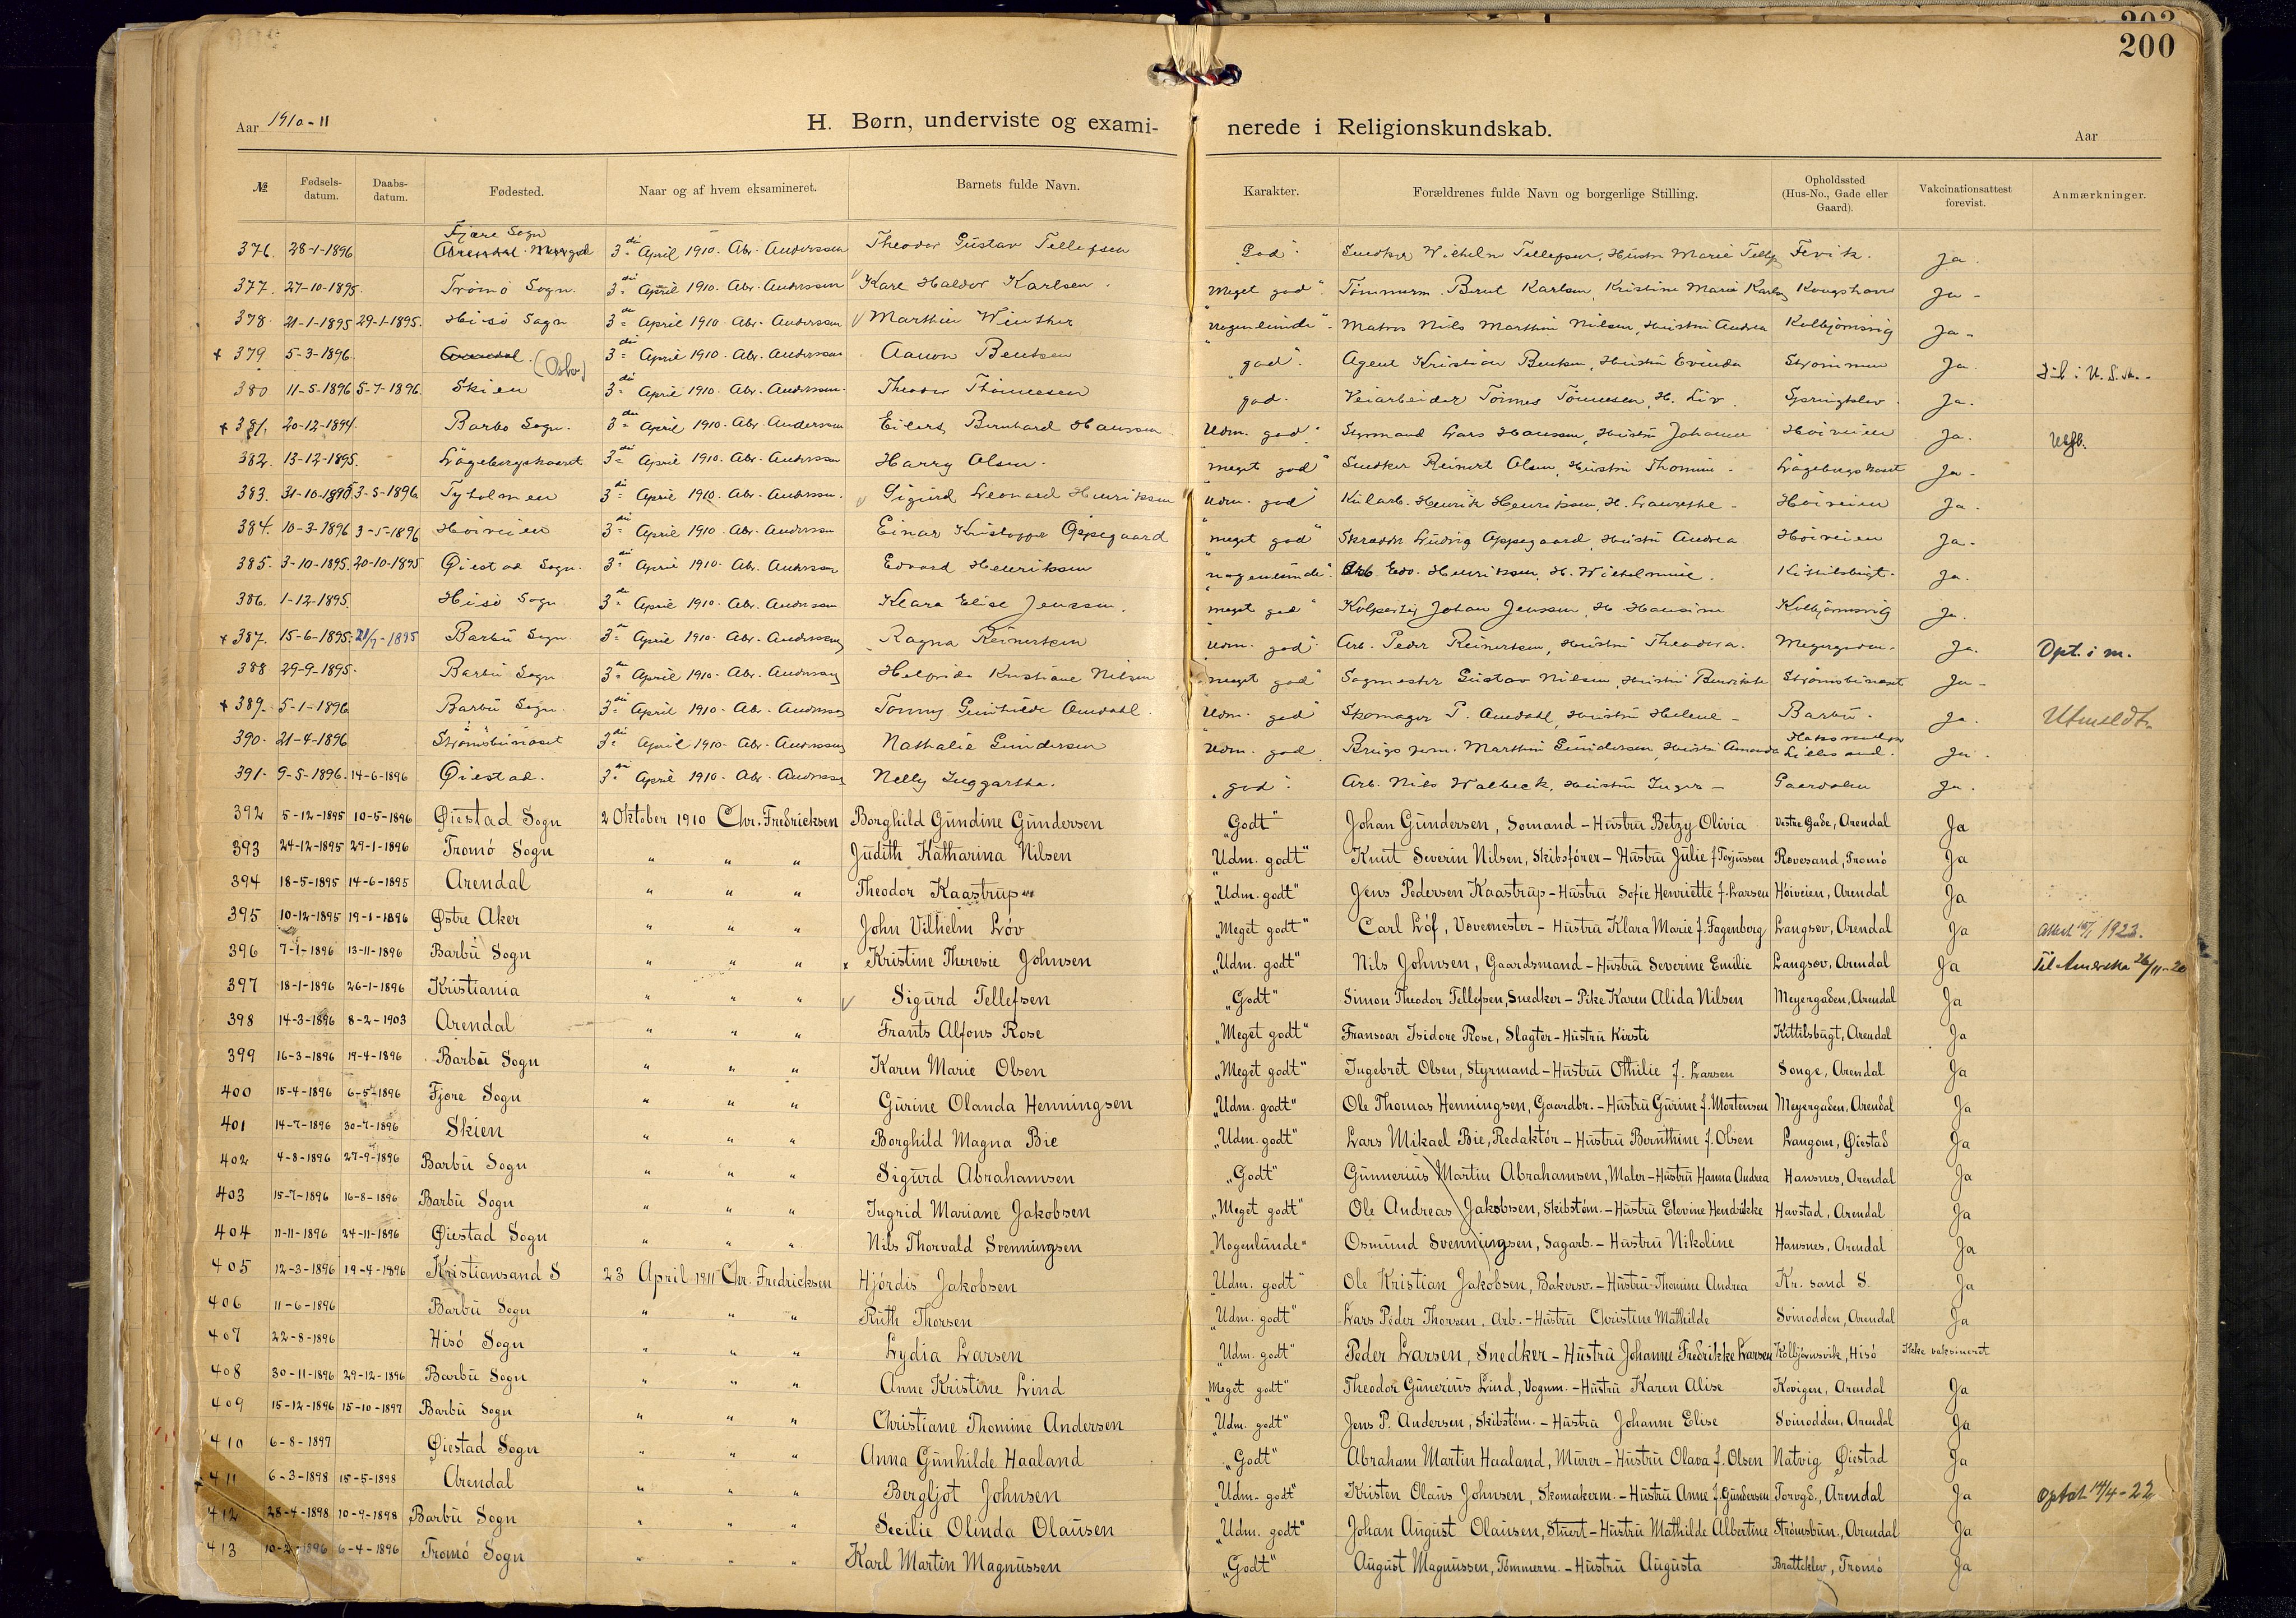 203
200
Aar 1910-11
H. Børn, underviste og exami- nerede i Religionskundskab.
Aar
№ Fødsels-datum. Daabs-datum. Fødested. Naar og af hvem eksamineret. Barnets fulde Navn. Karakter. Forældrenes fulde Navn og borgerlige Stilling. Opholdssted (Hus-No., Gade eller Gaard). Vakcinationsattest forevist. Anmærkninger.
Fjære Sogn
376. 28-1-1896 3die April 1910. Abr. Anderssen Theodor Gustav Tellefsen God". Snedker Wilhelm Tellefsen, Hustru Marie Fevik. Ja.
377. 27-10-1895. Tromö Sogn. 3die April 1910. Abr. Anderssen Karl Haldor Karlsen. Meget god". Tömmerm. Bernt Karlsen, Kristine Marie Kongshavn Ja -
378. 21-1-1895 29-1-1895. Hisö Sogn 3die April 1910. Abr. Anderssen Marthin Winther nogenlunde". Matros Nils Marthin Nilsen, Hustru Andrea Kolbjörnsvig Ja -
+ 379 5-3-1896 Arendal. (Oslo) 3die April 1910. Abr. Anderssen Aanon Bentsen "god". Agent Kristian Bentsen, Hustru Evinda Strömmen Ja.
380 11-5-1896 5-7-1896. Skien 3die April 1910. Abr. Anderssen. Theodor Thönnesen god. Veiarbeider Tönnes Tönnesen, H. Liv. Springklev. Ja.
+ 381. 20-12-1894. Barbo Sogn. 3die April 1910. Abr. Anderssen Eilert Bernhard Hanssen Udm. god". Styrmand Lars Hanssen, Hustru Johanne Höiveien Ja. Utfl.
382. 13-12-1895. 3die April 1910. Abr. Anderssen Harry Olsen. meget god" Snedker Reinert Olsen, Hustru Thomine. Ja -
383. 31-10-1895 3-5-1896 Tyholmen 3die April 1910. Abr. Anderssen. Sigurd Leonard Henriksen Udm. god" Kularb. Henrik Henriksen, H. Laurethe - Höiveien Ja.
384. 10-3-1896 3-5-1896 Höiveien 3die April 1910. Abr. Anderssen Einar Kristoffer Oppegaard meget god" Skrædder Ludvig Oppegaard, Hustru Andrea Höiveien Ja -
385. 3-10-1895. 20-10-1895 Öiestad Sogn. 3die April 1910. Abr. Anderssen Edvard Henriksen nogenlunde". Arb. Edv. Henriksen, H. Wilhelmine. Kittilsbugt. Ja.
386. 1-12-1895. Hisö Sogn 3die April 1910. Abr. Anderssen Klara Elise Jenssen. meget god" Johan Jenssen, H. Hansine Kolbjörnsvig Ja.
+ 387. 15-6-1895. 21/7-1895 Barbu Sogn 3die April 1910. Abr. Anderssen Ragna Reinertsen Udm. god" Arb. Peder Reinertsen, Hustru Theodora. Meyergaden. Ja. Opt. i m.
388 29-9-1895. Barbu Sogn 3die April 1910. Abr. Anderssen Helfrida Kristiane Nilsen meget god" Sagmester Gustav Nilsen, Hustru Bendikte Strömsbunaset Ja -
+ 389. 5-1-1896 Barbu Sogn. 3die April 1910. Abr. Anderssen Tonny Gunhilde Omdahl. Udm. god" Skomager P. Omdahl, Hustru Helene - Barbu. Ja. Utmeldt.
390. 21-4-1896 Strömsbunaset 3die April 1910. Abr. Anderssen Nathalie Gundersen Udm. god Marthin Gundersen, Hustru Amanda Lillesand. Ja.
391. 9-5-1896. 14-6-1896 Öiestad. 3die April 1910. Abr. Anderssen Nelly Inggartha. "god". Arb. Nils Walbeck, Hustru Inger - Gaardalen Ja.
392 5-12-1895 10-5-1896 Øiestad Sogn 2 Oktober 1910 Chr. Fredricksen Borghild Gundine Gundersen „Godt" Johan Gundersen, Sømand - Hustru Betzy Olivia Vestre Gade, Arendal Ja
393 24-12-1895 29-1-1896 Tromö Sogn " " " Judith Katharina Nilsen „Udm. godt" Knut Severin Nilsen, Skibsförer - Hustru Julie f. Terjussen Rævesand, Tromö Ja
394 18-5-1895 14-6-1895 Arendal " " " Theodor Kaastrup „Udm. godt" Jens Pedersen Kaastrup - Hustru Sofie Henriette f. Larsen Höiveien, Arendal Ja
395 10-12-1895 19-1-1896 Østre Aker " " " John Vilhelm Löv „Meget godt" Carl Löf, Vævemester - Hustru Klara Marie f. Fagenberg Langsæv, Arendal Ja Attest 10/7 1923.
396 7-1-1896 13-11-1896 Barbu Sogn " " " x Kristine Theresie Johnsen „Udm. godt" Nils Johnsen, Gaardsmand - Hustru Severine Emilie Langsæv, Arendal Ja Til Amerika 26/11-20
397 18-1-1896 26-1-1896 Kristiania " " " Sigurd Tellefsen „Godt" Simon Theodor Tellefsen, Snedker - Pike Karen Alida Nilsen Meyergaden, Arendal Ja
398 14-3-1896 8-2-1903 Arendal " " " Frants Alfons Rose „Meget godt" Fransoar Isidore Rose, Slagter - Hustru Kirsti Kittilsbugt, Arendal Ja
399 16-3-1896 19-4-1896 Barbu Sogn " " " Karen Marie Olsen „Meget godt" Ingebret Olsen, Styrmand - Hustru Othilie f. Larsen Songe, Arendal Ja
400 15-4-1896 6-5-1896 Fjære Sogn " " " Gurine Olanda Henningsen „Udm. godt" Ole Thomas Henningsen, Gaardbr. - Hustru Gurine f. Mortensen Meyergaden, Arendal Ja
401 14-7-1896 30-7-1896 Skien " " " Borghild Magna Bie „Udm. godt" Lars Mikael Bie, Redaktör - Hustru Bernthine f. Olsen Langom, Øiestad Ja
402 4-8-1896 27-9-1896 Barbu Sogn " " " Sigurd Abrahamsen „Godt" Gunnerius Martin Abrahamsen, Maler - Hustru Hanna Andrea Hansnes, Arendal Ja
403 15-7-1896 16-8-1896 Barbu Sogn " " " Ingrid Mariane Jakobsen „Meget godt" Ole Andreas Jakobsen, Skibstöm. - Hustru Elevine Hendrikke Havstad, Arendal Ja
404 11-11-1896 24-11-1896 Øiestad Sogn " " " Nils Thorvald Svenningsen „Nogenlunde" Osmund Svenningsen, Sagarb. - Hustru Nikoline Hansnes, Arendal Ja
405 12-3-1896 19-4-1896 Kristiansand S 23 April 1911 Chr. Fredricksen Hjördis Jakobsen „Udm. godt" Ole Kristian Jakobsen, Bakersv. - Hustru Thomine Andrea Kr. sand S. Ja
406 11-6-1896 Barbu Sogn " " " Ruth Thorsen „Udm. godt" Lars Peder Thorsen, Arb. - Hustru Christine Mathilde Svinodden, Arendal Ja
407 22-8-1896 Hisö Sogn " " " Lydia Larsen „Udm. godt" Peder Larsen, Snedker - Hustru Johanne Fredrikke Larsen Kolbjörnsvik, Hisö Ikke vaksineret
408 30-11-1896 29-12-1896 Barbu Sogn " " " Anne Kristine Lind „Meget godt" Theodor Gunerius Lind, Vognm. - Hustru Karen Alise Kovigen, Arendal Ja
409 15-12-1896 15-10-1897 Barbu Sogn " " " Christiane Thomine Andersen „Udm. godt" Jens P. Andersen, Skibstöm. - Hustru Johanne Elise Svinodden, Arendal Ja
410 6-8-1897 Øiestad Sogn " " " Anna Gunhilde Haaland „Godt" Abraham Martin Haaland, Murer - Hustru Olava f. Olsen Natvig Øiestad Ja
411 6-3-1898 15-5-1898 Arendal " " " Bergljot Johnsen „Udm. godt" Kristen Olaus Johnsen, Skomakerm. - Hustru Anne f. Gundersen Torvgd., Arendal Ja Optat 14/4-22
412 28-4-1898 10-9-1898 Barbu Sogn " " " Secilie Olinda Olausen „Udm. godt" Johan August Olausen, Stuert - Hustru Mathilde Albertine Strömsbun., Arendal Ja
413 10-2-1896 6-4-1896 Tromö Sogn " " " Karl Martin Magnussen „Godt" August Magnussen, Tömmerm. - Hustru Augusta Bratteklev, Tromö Ja